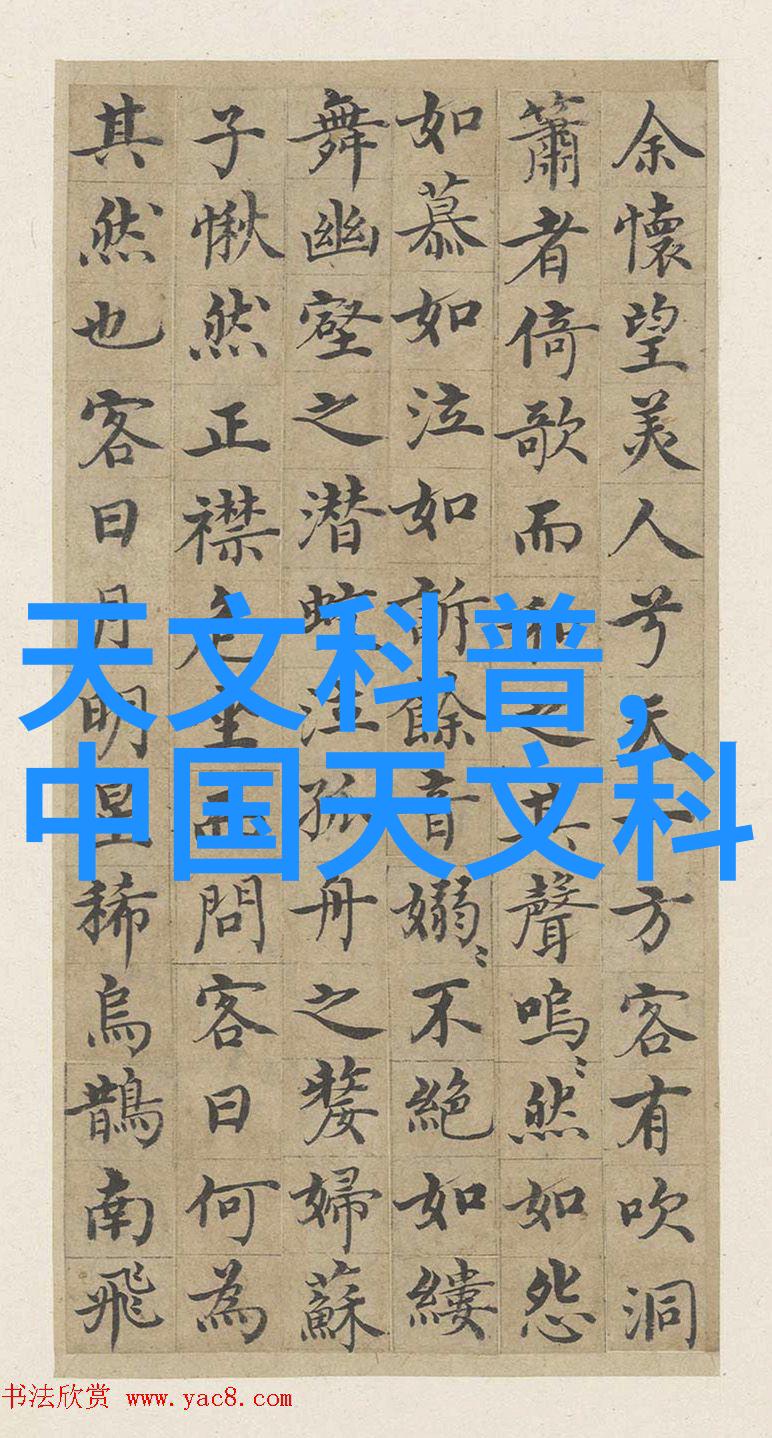 余懷望美人兮天一方客有吹洞
簫者倚歌而和之其聲嗚〻然如怨
如慕如泣如訴餘音嫋〻不絕如縷
舞幽壑之潜蛟泣孤舟之嫠婦蘇
子愀然正襟危坐而問客曰何為
其然也客曰月明星稀烏鵲南飛
天文科普,
中国天文科
书法欣赏 www.yac8.com